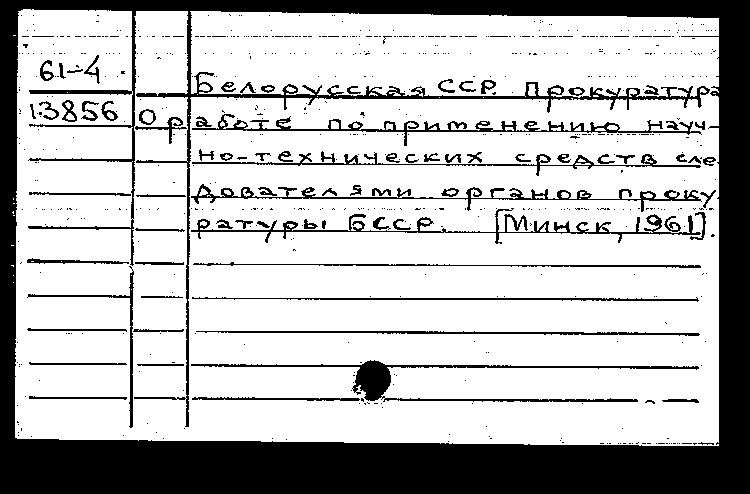 61-4
Белорусская ССР. Прокуратура
13856
О работе по применению науч-
но-технических средств сле
дователями органов проку
ратуры БССР. [Минск, 1961].